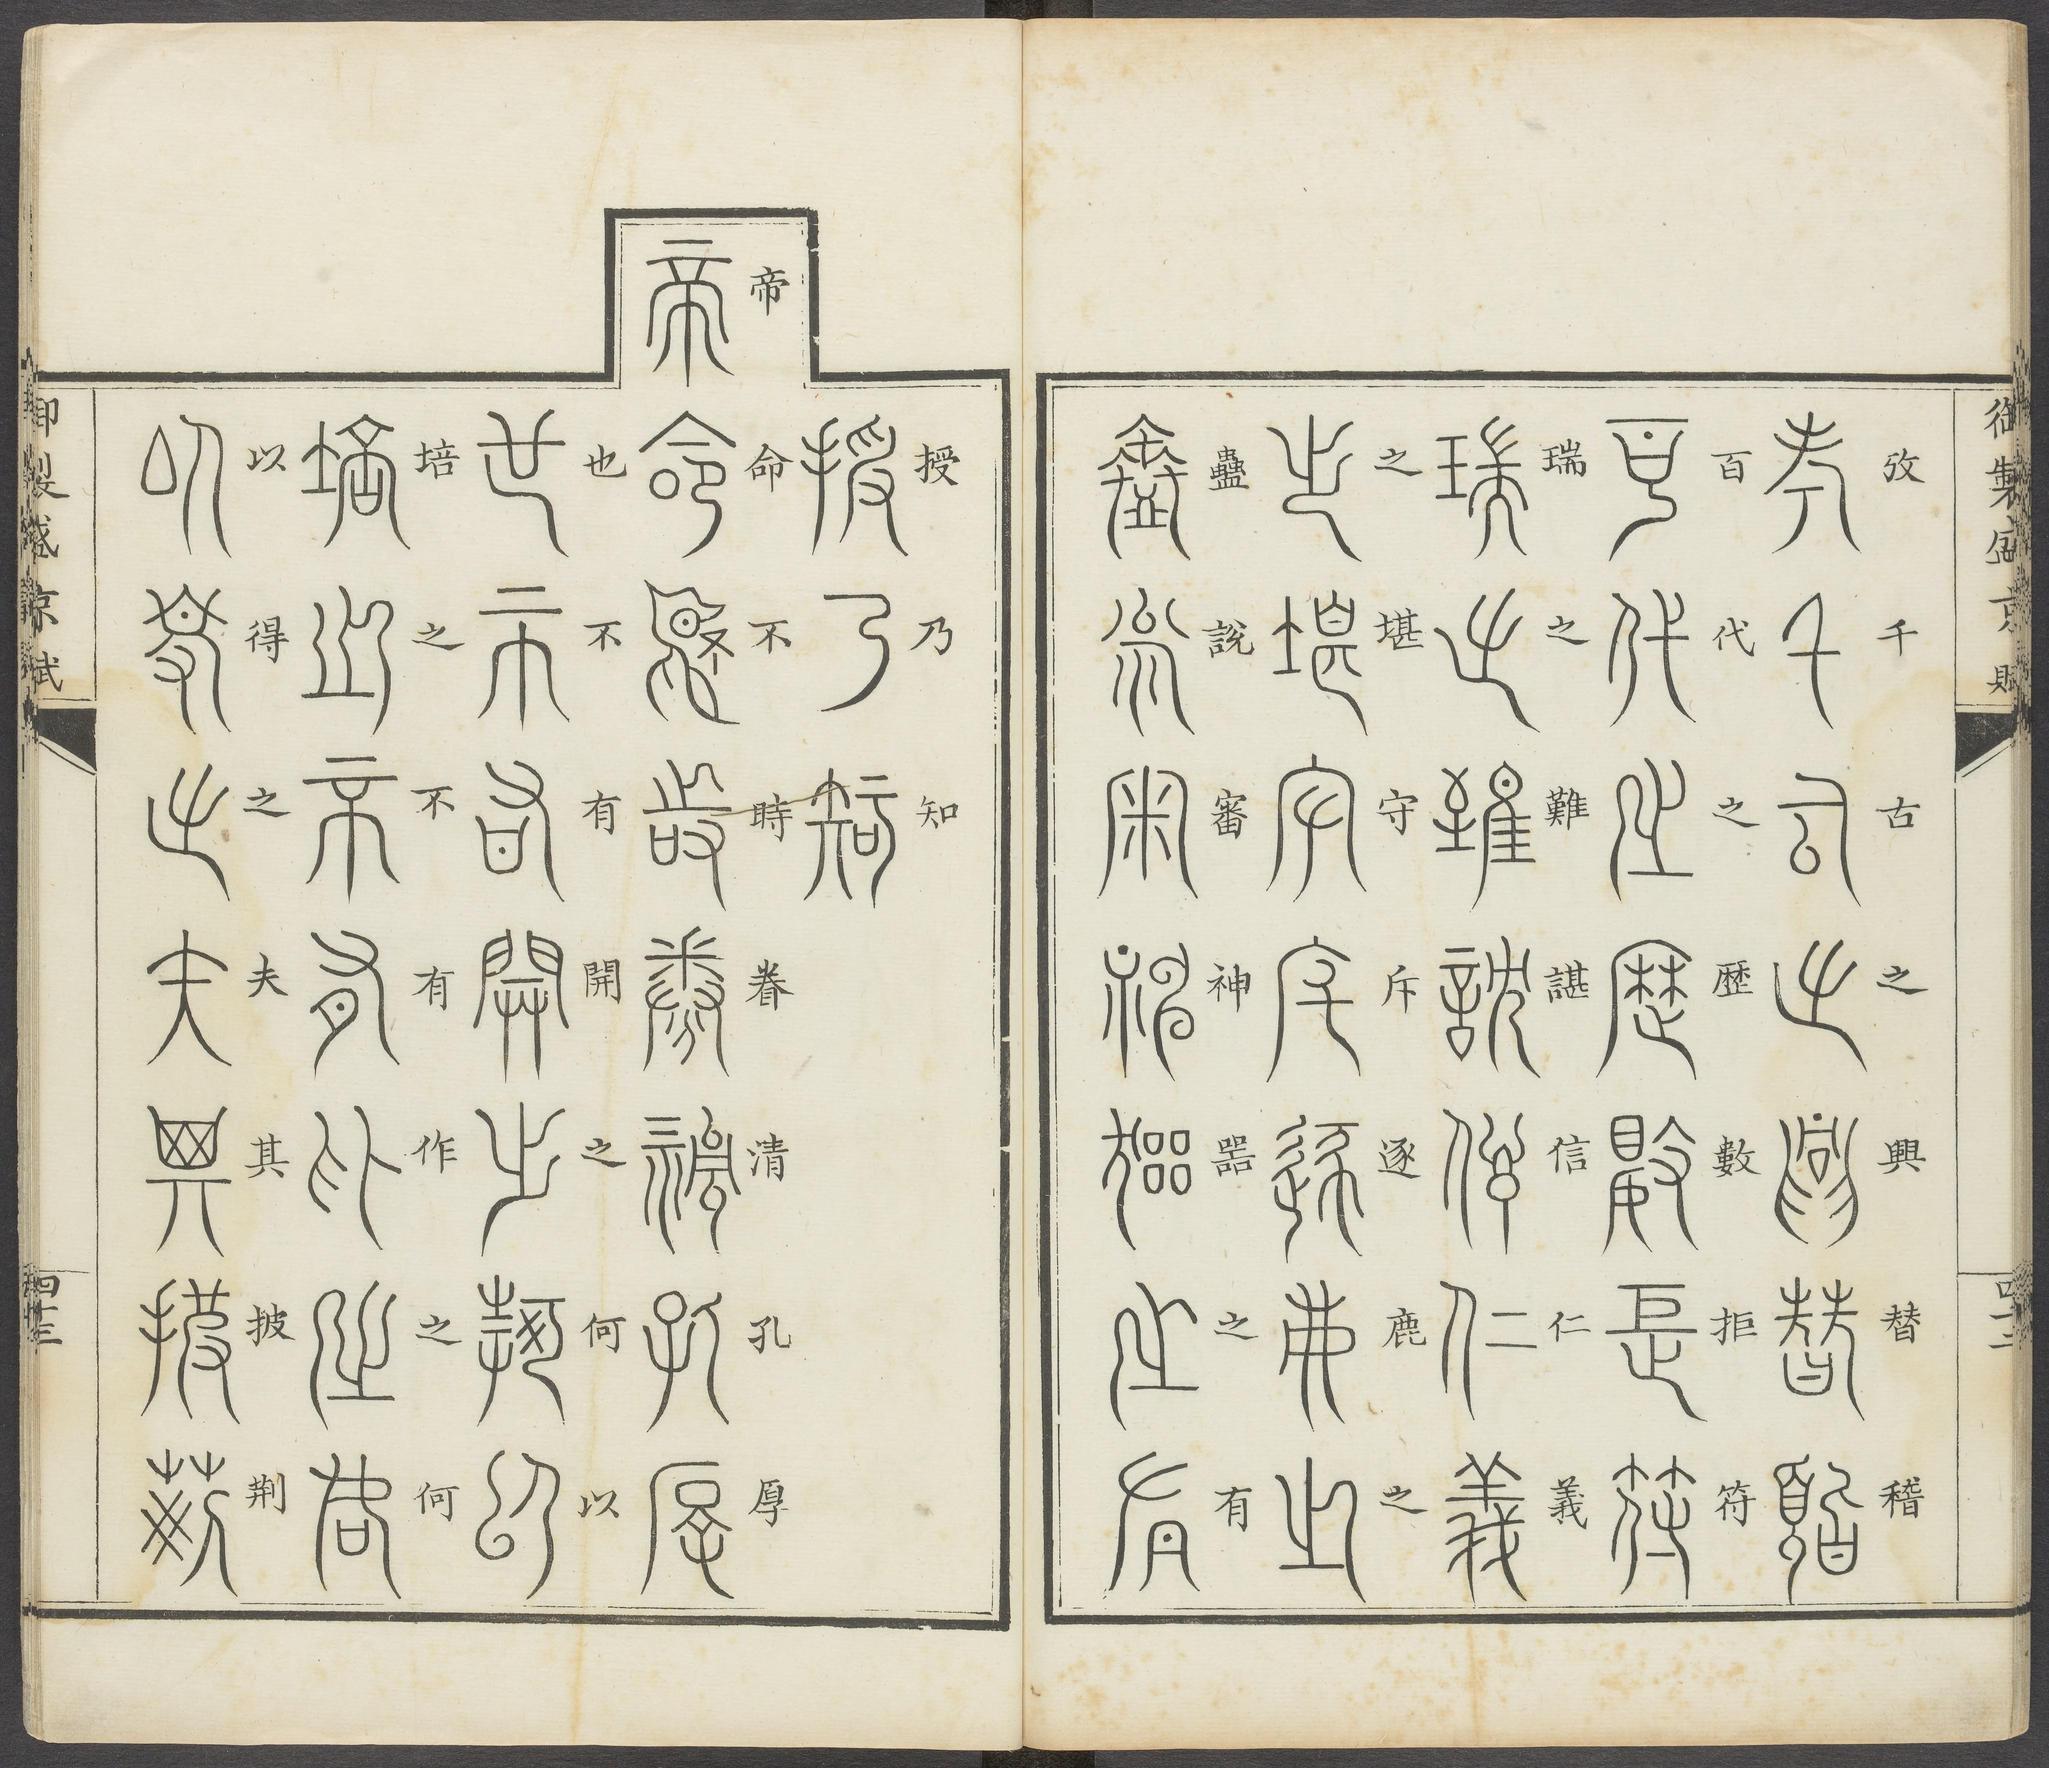 御製盛京賦
攷千古之興替稽
百代之歷數拒符
瑞之難諶信仁義
之堪守斥逐鹿之
蠱說審神器之有
授乃知
帝命不時眷清孔厚
也不有開之何以
培之不有作之何
以得之夫其披荆
御製盛京賦
四十三